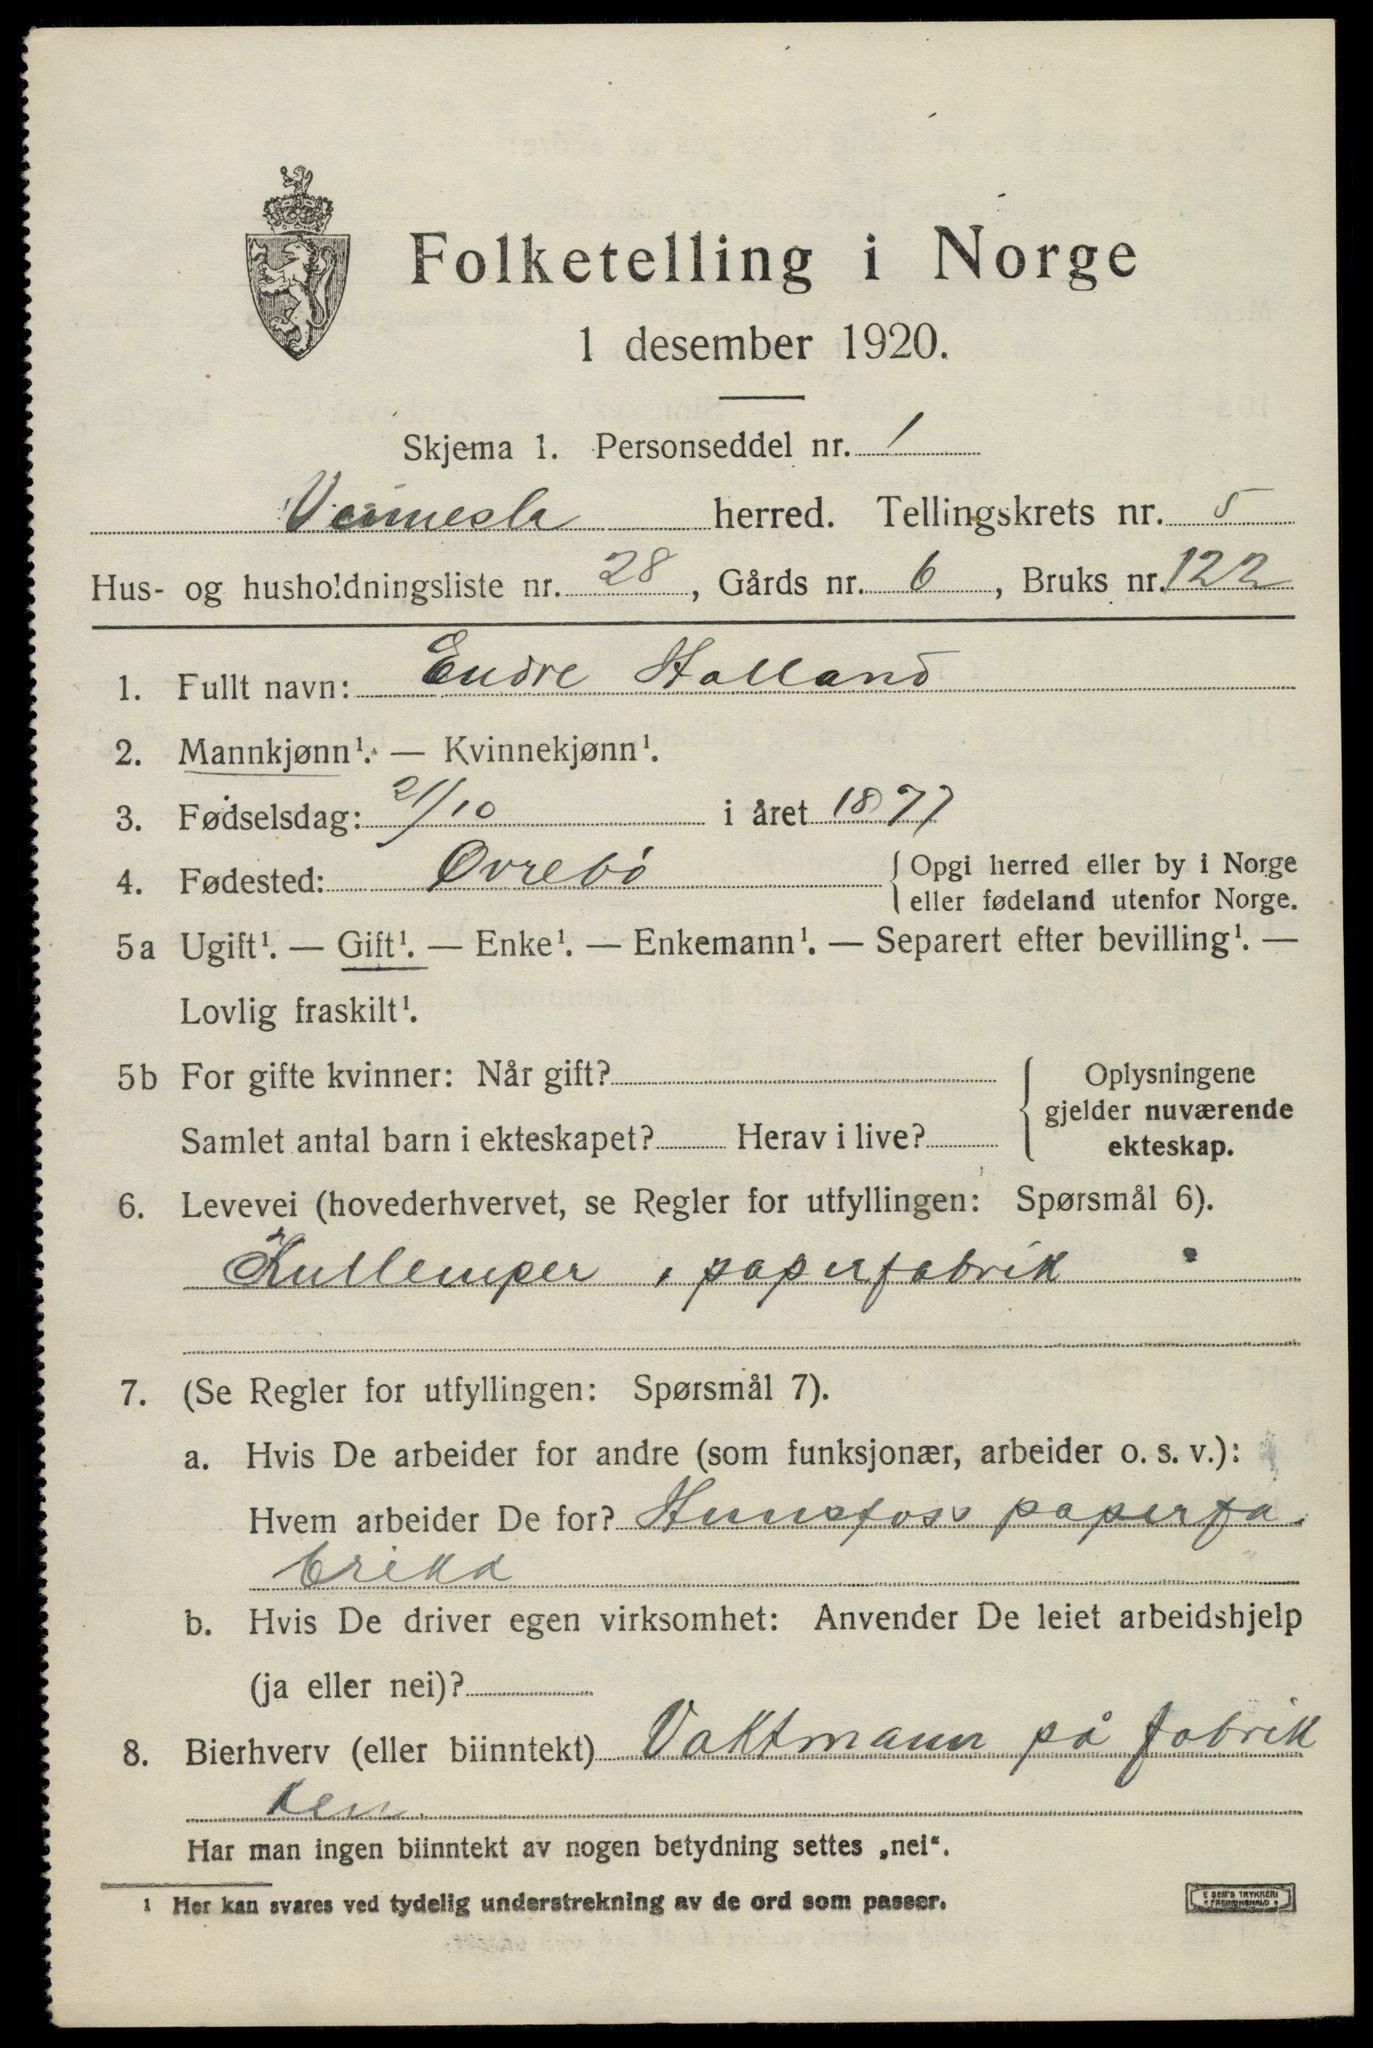 Folketelling i Norge
1 desember 1920.
Skjema 1. Personseddel nr. 1
Vennesla herred. Tellingskrets nr. 5
Hus- og husholdningsliste nr. 28, Gårds nr. 6, Bruks nr. 122
1. Fullt navn: Endre Holland
2. Mannkjønn¹. — Kvinnekjønn¹.
3. Fødselsdag: 21/10 i året 1877
4. Fødested: Øvrebö { Opgi herred eller by i Norge
eller fødeland utenfor Norge.
5a Ugift¹. — Gift¹. — Enke¹. — Enkemann¹. — Separert efter bevilling¹. —
Lovlig fraskilt¹.
5b For gifte kvinner: Når gift? { Oplysningene
gjelder nuværende
Samlet antal barn i ekteskapet? Herav i live? ekteskap.
6. Levevei (hovederhvervet, se Regler for utfyllingen: Spørsmål 6).
Kullemper i paperfabrik
7. (Se Regler for utfyllingen: Spørsmål 7).
a. Hvis De arbeider for andre (som funksjonær, arbeider o. s. v.):
Hvem arbeider De for? Hunsfoss paperfa
brikk
b. Hvis De driver egen virksomhet: Anvender De leiet arbeidshjelp
(ja eller nei)?
8. Bierhverv (eller biinntekt) Vaktmann på fabrik
ken
Har man ingen biinntekt av nogen betydning settes „nei“.
1 Her kan svares ved tydelig understrekning av de ord som passer.
E SEM'S TRYKKERI
FREDRIKSHALD